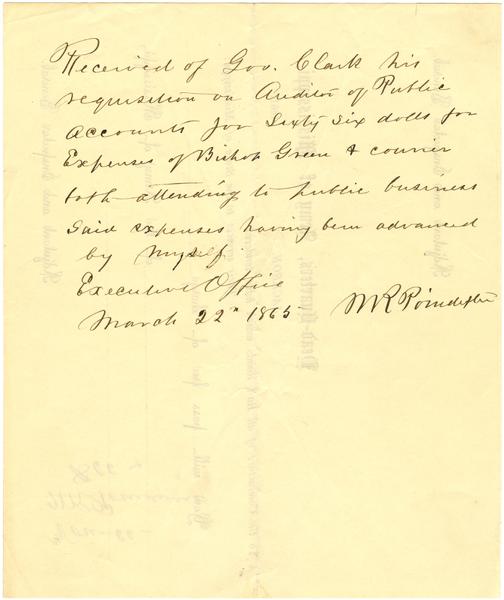 Received of Gov. Clark his
requisition on Auditor of Public
Accounts for Sixty Six dolls for
Expenses of Bishop Green & courier
both attending to public business
Said expenses having been advanced
by myself.
Executive Office
March 22" 1865
W R Poindexter